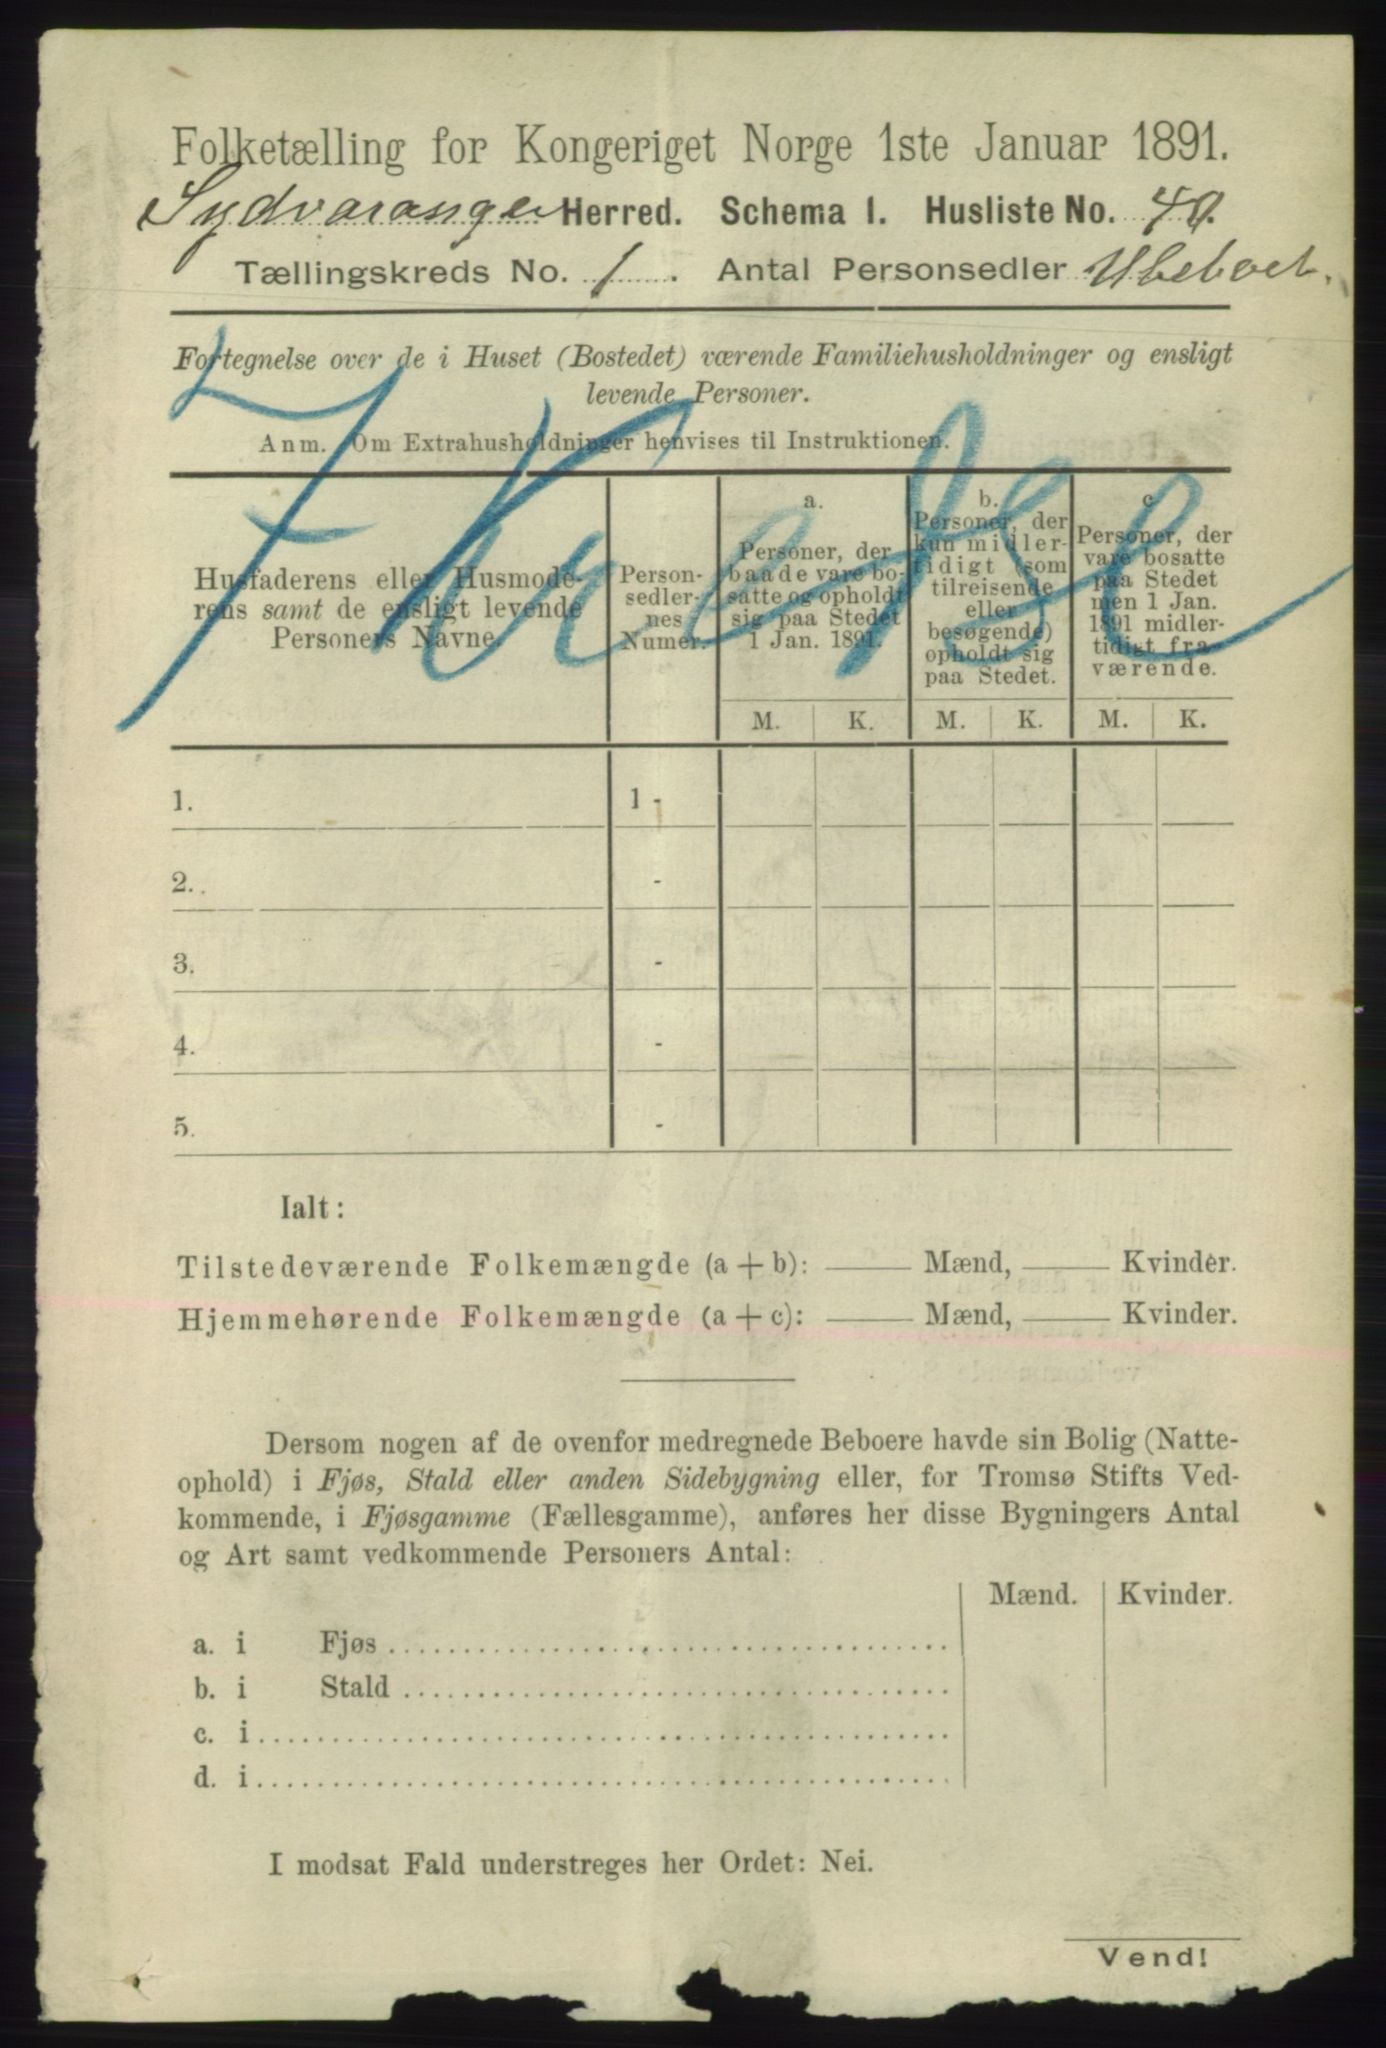 Folketælling for Kongeriget Norge 1ste Januar 1891.
Sydvaranger Herred. Schema 1. Husliste No. 40.
Tællingskreds No. 1. Antal Personsedler Ubeboet.
Fortegnelse over de i Huset (Bostedet) værende Familiehusholdninger og ensligt
levende Personer.
Anm. Om Extrahusholdninger henvises til Instruktionen.
Husfaderens eller Husmode-
rens samt de ensligt levende
Personers Navne.
Person-
sedler-
nes
Numer.
a.
Personer, der
baade vare bo-
satte og opholdt
sig paa Stedet
1 Jan. 1891.
b.
Personer, der
kun midler-
tidigt (som
tilreisende
eller
besøgende)
opholdt sig
paa Stedet.
c.
Personer, der
vare bosatte
paa Stedet
men 1 Jan.
1891 midler-
tidigt fra-
værende.
M. K. M. K. M. K.
1. 1 -
2. -
3. -
4. -
5. -
Ialt:
Tilstedeværende Folkemængde (a + b): Mænd, Kvinder.
Hjemmehørende Folkemængde (a + c): Mænd, Kvinder.
Dersom nogen af de ovenfor medregnede Beboere havde sin Bolig (Natte-
ophold) i Fjøs, Stald eller anden Sidebygning eller, for Tromsø Stifts Ved-
kommende, i Fjøsgamme (Fællesgamme), anføres her disse Bygningers Antal
og Art samt vedkommende Personers Antal:
Mænd. Kvinder.
a. i Fjøs
b. i Stald
c. i
d. i
I modsat Fald understreges her Ordet: Nei.
Vend!